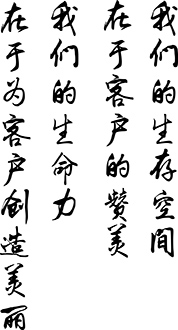 我们的生存空间
在于客户的赞美
我们的生命力
在于为客户创造美丽